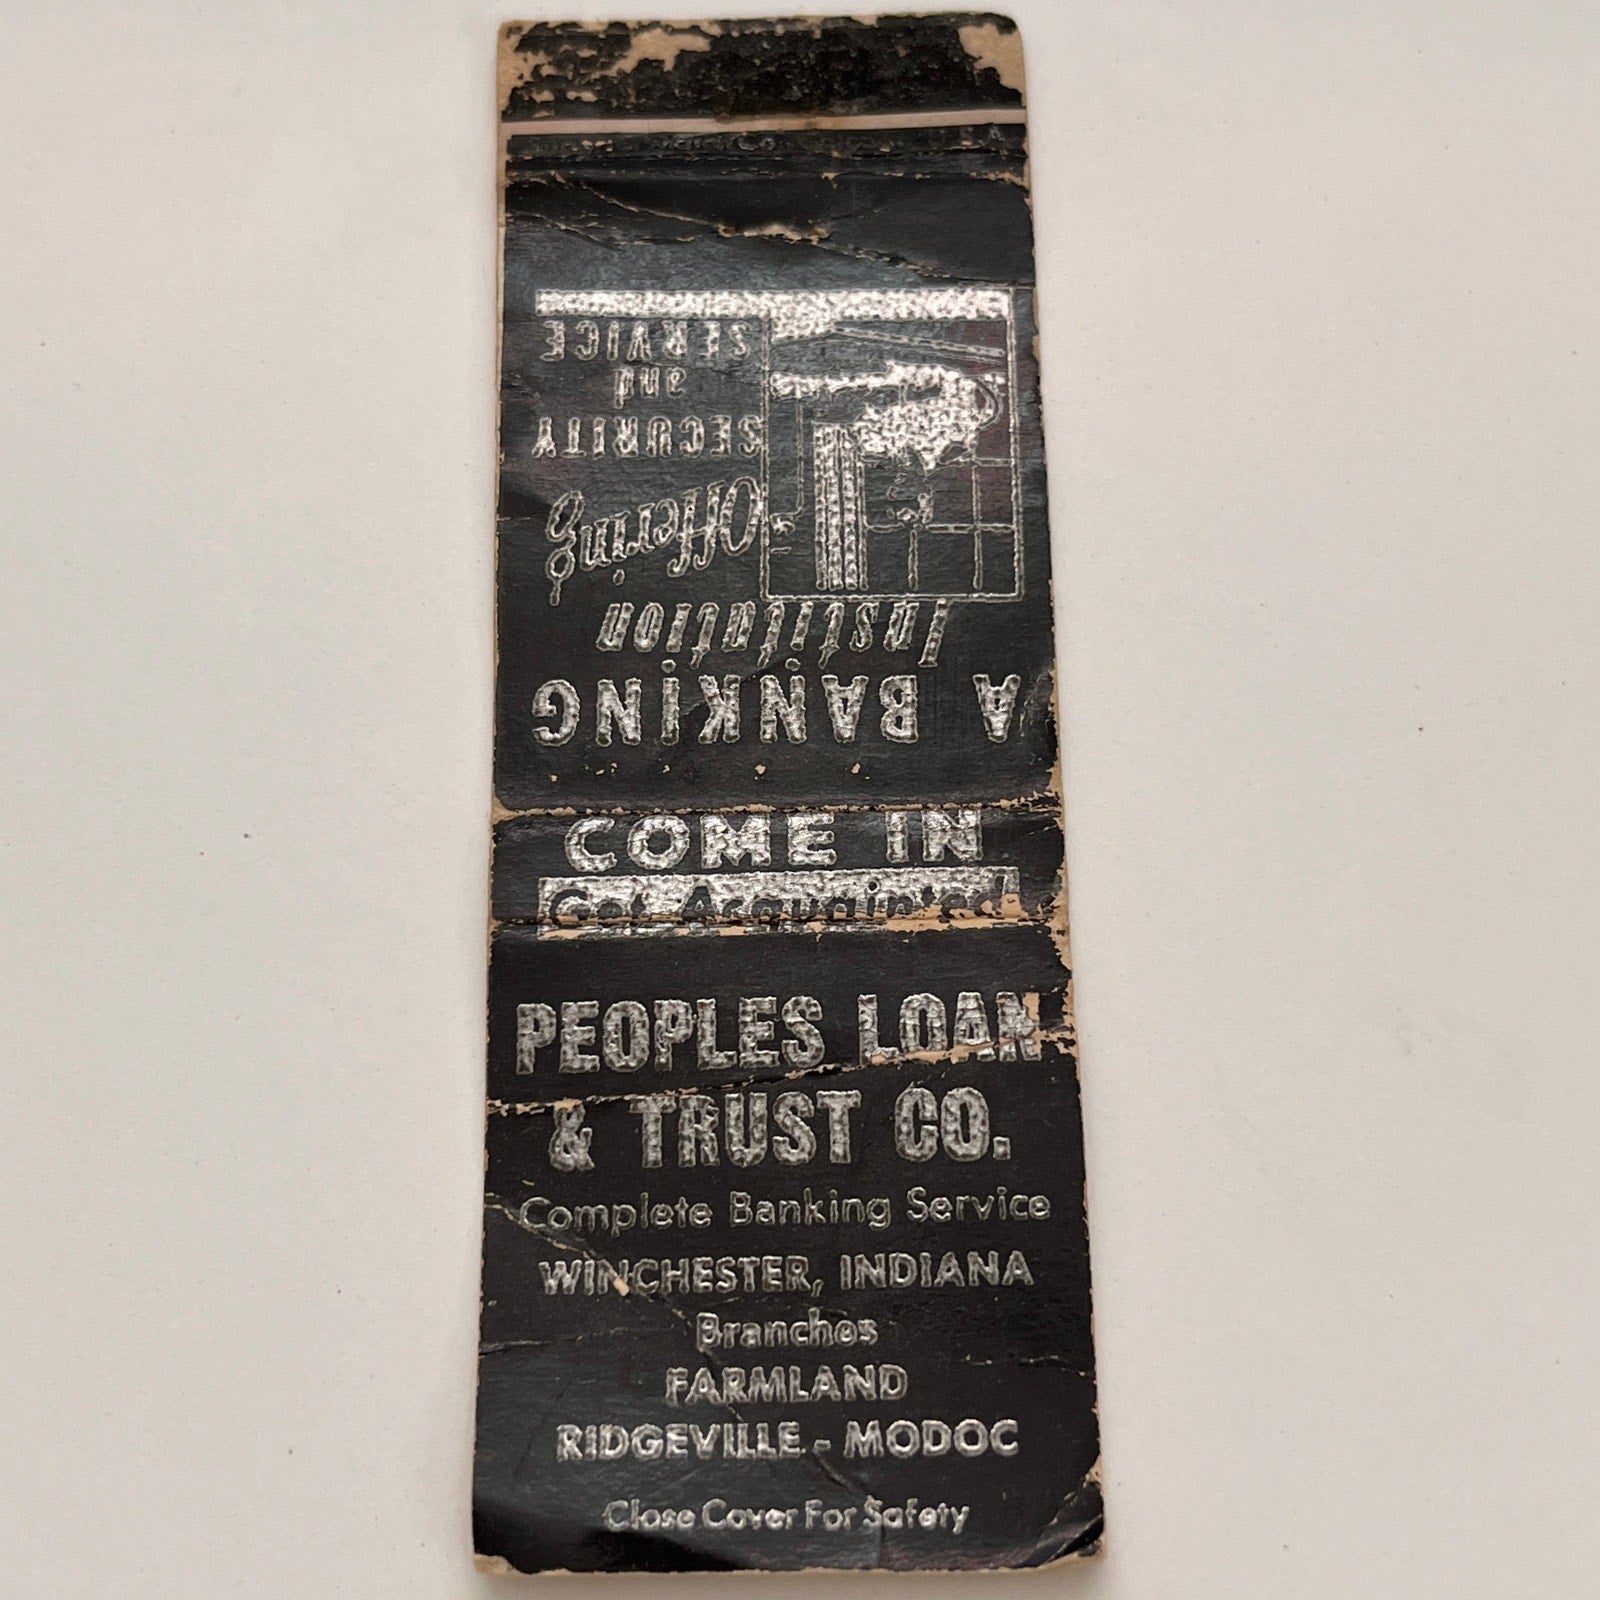 A BANKING
Institution
Offering
SECURITY
and
SERVICE
COME IN
Get Acquainted
PEOPLES LOAN
& TRUST CO.
Complete Banking Service
WINCHESTER, INDIANA
Branches
FARMLAND
RIDGEVILLE - MODOC
Close Cover For Safety